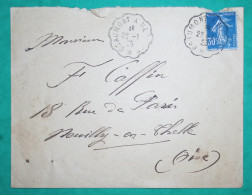 BEAUMONT A
Monsieur
Fs Caffin
18 Rue de Paris
Neuilly-en-Thelle
(Oise)